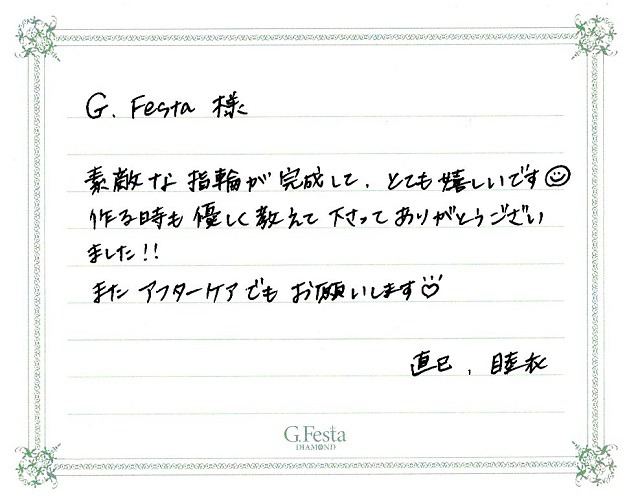 G. Festa 様
素敵な指輪が完成して、とても嬉しいです☺
作る時も優しく教えて下さってありがとうござい
ました!!
また アフターケアでも お願いします♡
直己、睦衣
G.Festa
DIAMOND